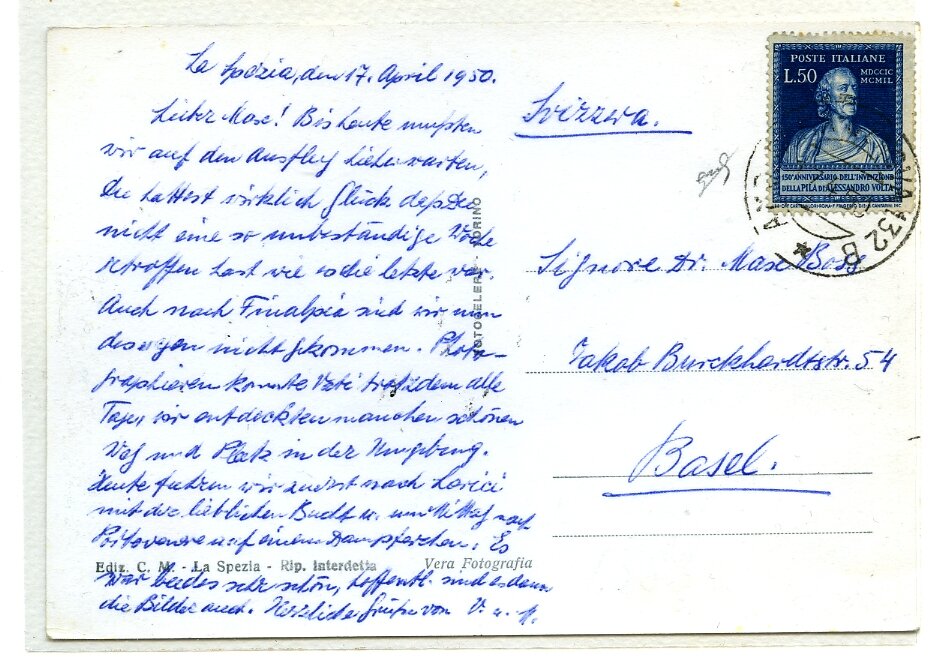 La Spezia, den 17. April 1950.
Lieber Max! Bis heute mussten
wir auf den Ausflug hieher warten,
Du hattest wirklich Glück dass Du
nicht eine so unbeständige Woche
getroffen hast wie es die letzte war.
Auch nach Finalpia sind wir nun
deswegen nicht gekommen. Photo-
graphieren konnte Vati trotzdem alle
Tage, wir entdeckten manchen schönen
Weg und Platz in der Umgebung.
Heute fuhren wir zuerst nach Lerici
mit der lieblichen Bucht u. am Mittag nach
Portovenere auf einem Dampferchen. Es
war beides sehr schön, hoffentl. sind es dann
die Bilder auch. Herzliche Grüsse von V. u. M.
Ediz. C. M. - La Spezia - Rip. Interdetta
Vera Fotografia
FOTOCELERE TORINO
Svizzera.
Signore Dr. Max
Jakob Burckhardtstr. 54
Basel.
POSTE ITALIANE
L.50
MDCCIC
MCMIL
150° ANNIVERSARIO DELL'INVENZIONE
DELLA PILA DI ALESSANDRO VOLTA
132 B